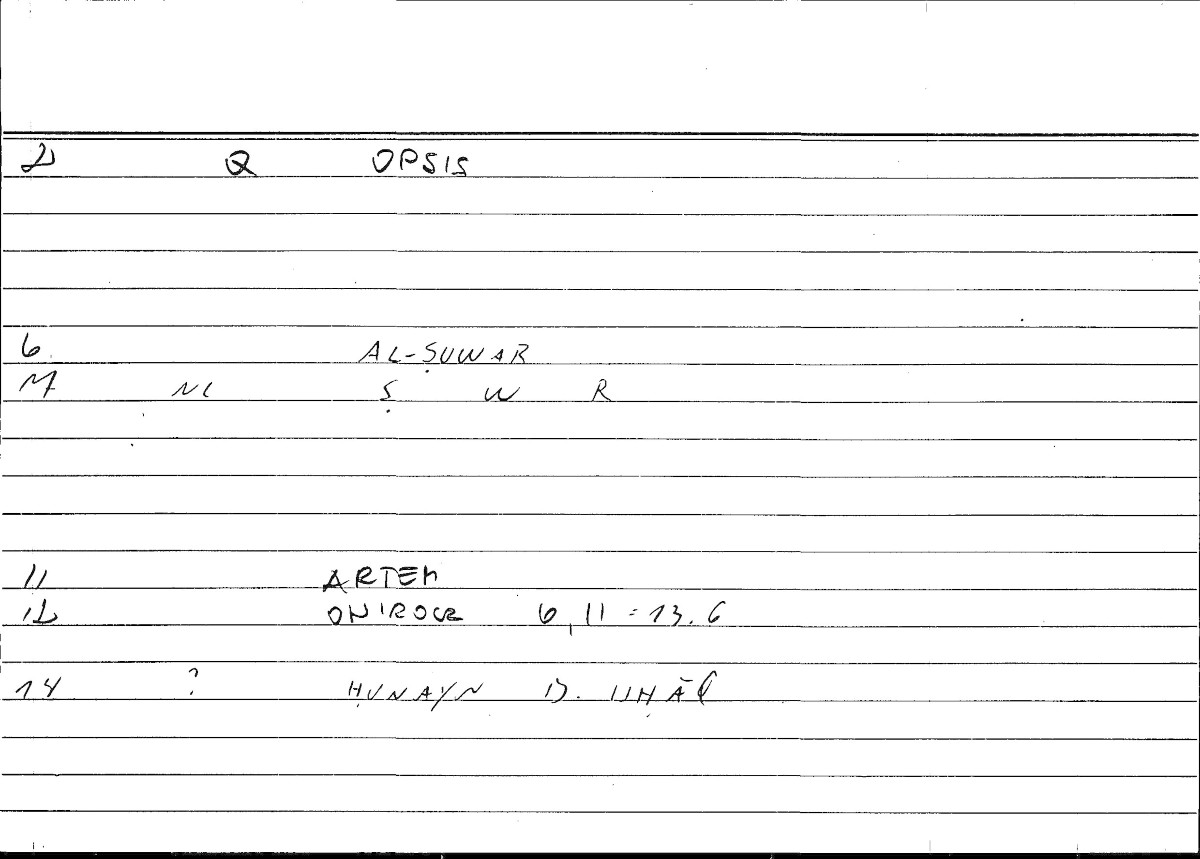 2 Q OPSIS
6 AL-ṢUWAR
M NC Ṣ W R
11 ARTEM
12 ONIROCR 6,11 = 13.6
14 ? ḤUNAYN B. ISḤĀQ